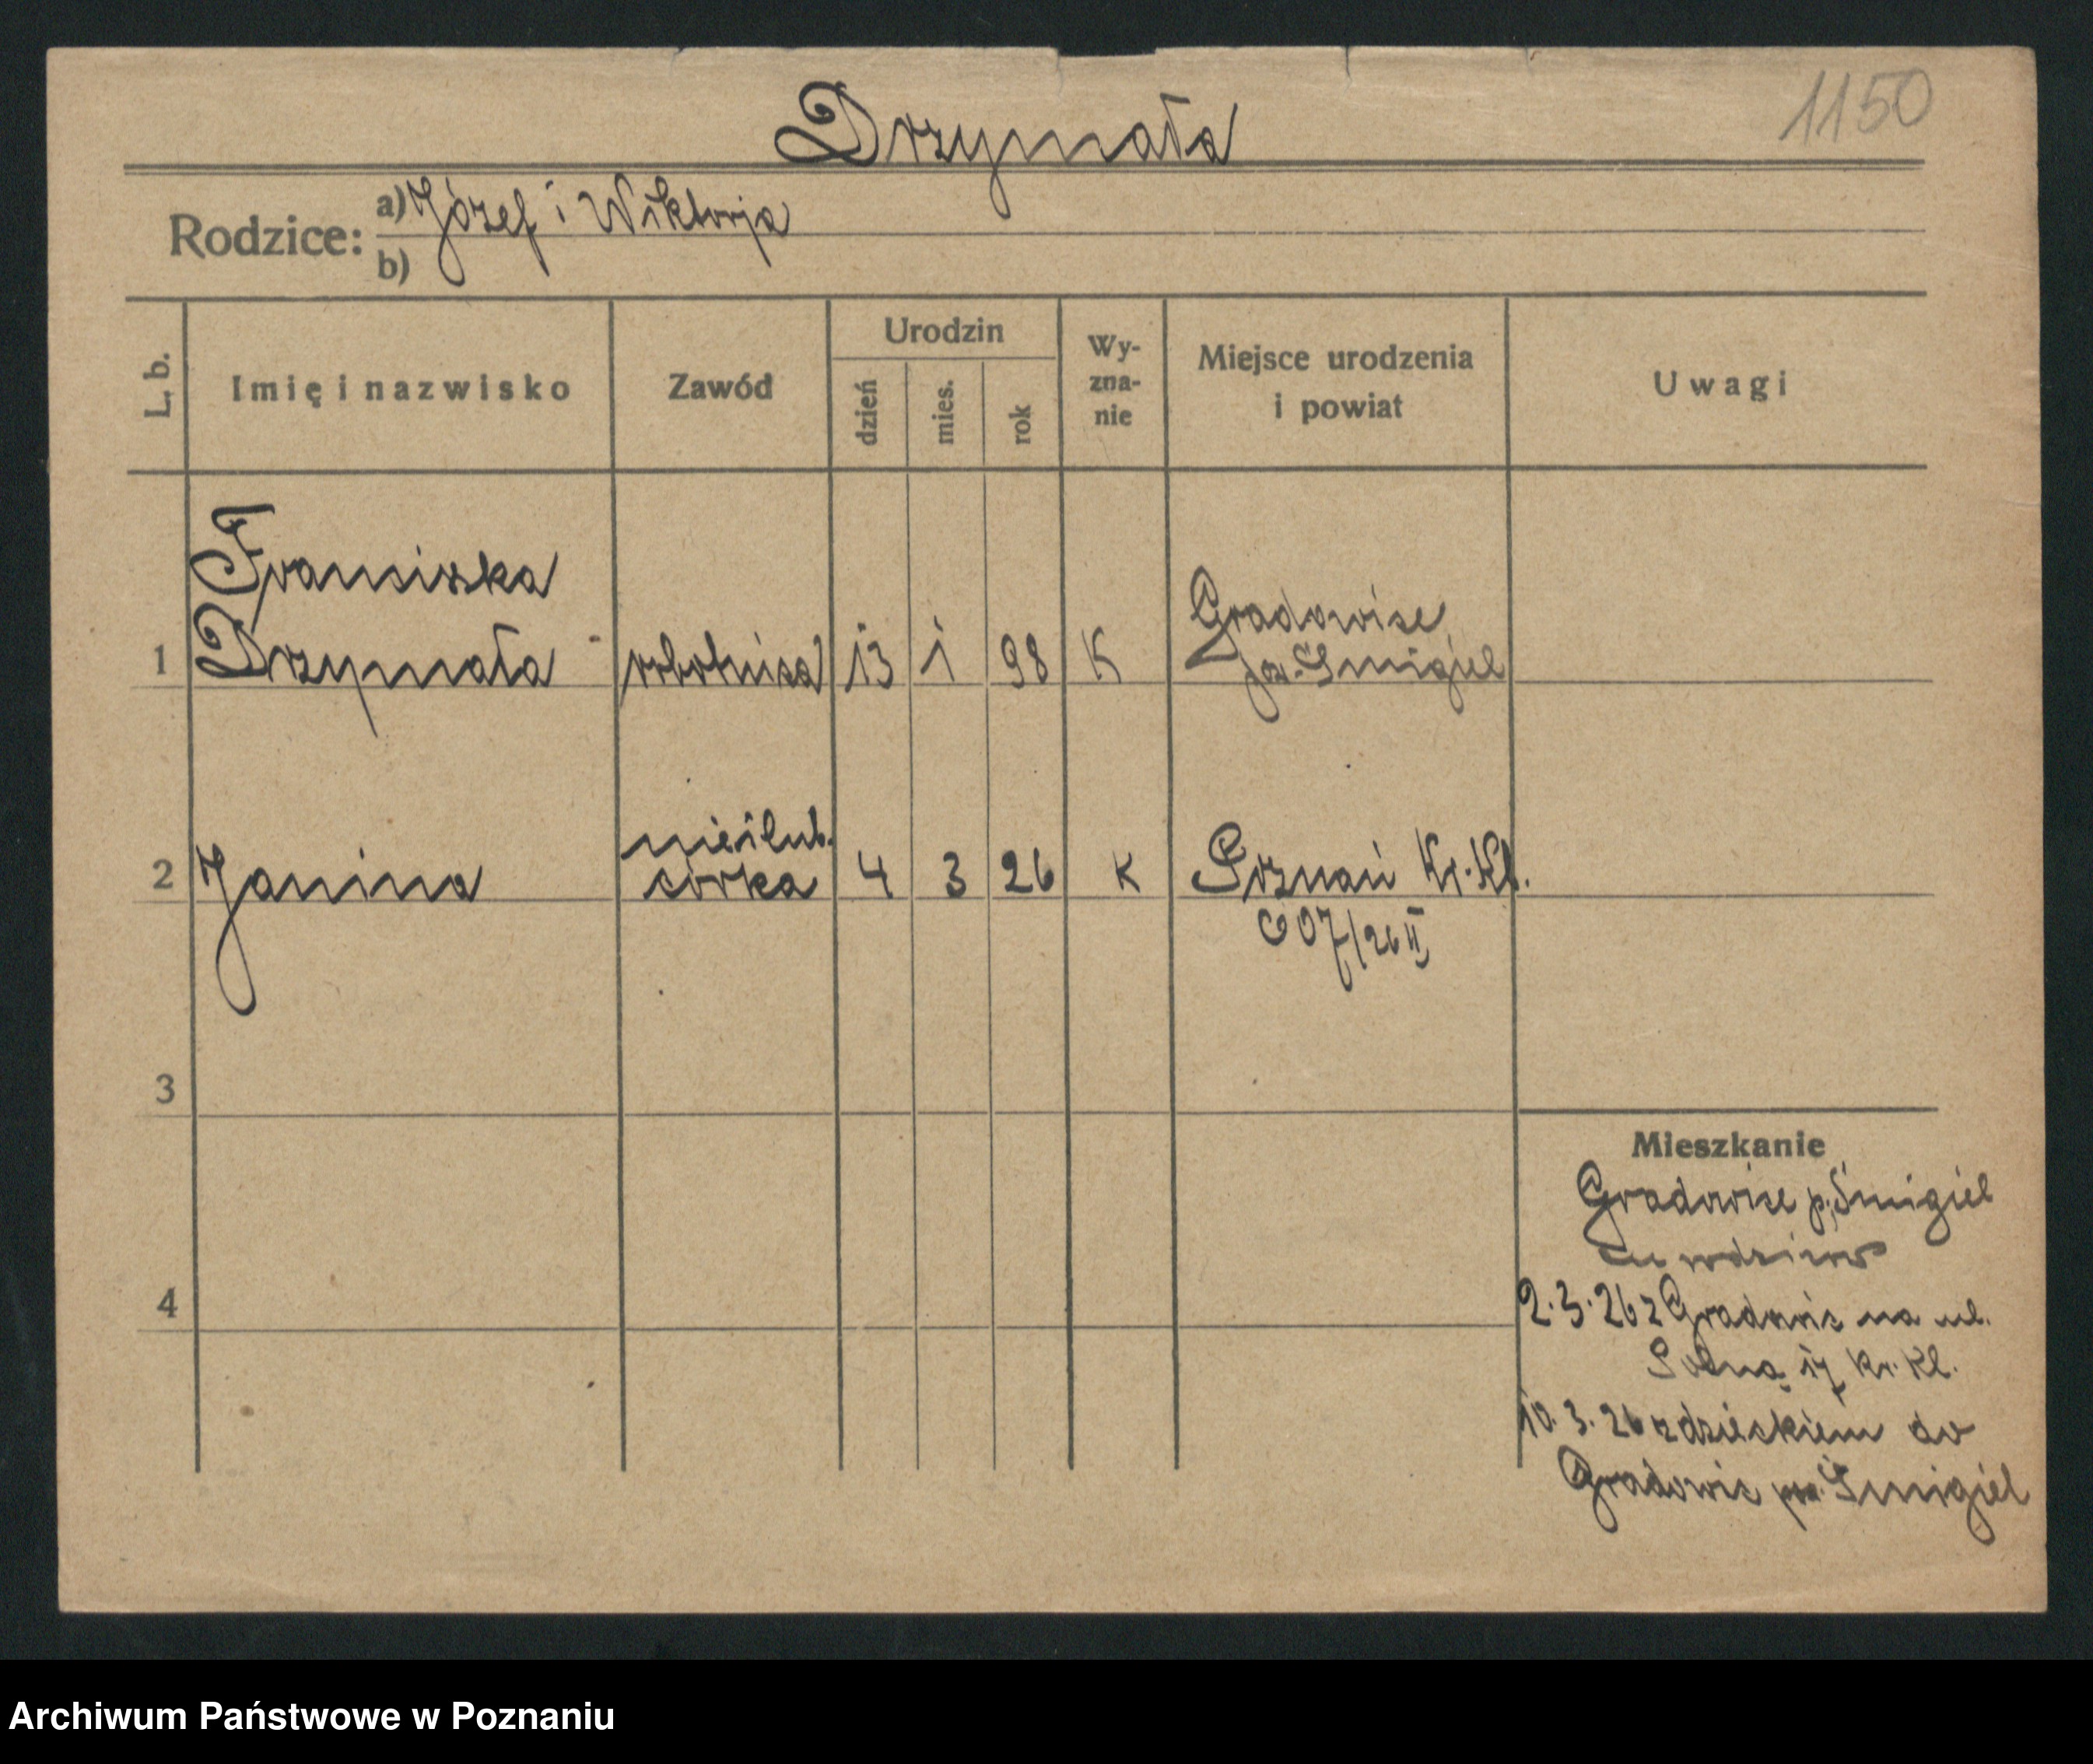 1150
Drzymała
Rodzice:
a) Józef i Wiktorja
b)
L. b.
Imię i nazwisko
Zawód
Urodzin
dzień
mies.
rok
Wy-
zna-
nie
Miejsce urodzenia
i powiat
Uwagi
Franciszka
1 Drzymała robotnica 13 1 98 K Gradowice
pow. Śmigiel
nieślub.
2 Janina córka 4 3 26 K Poznań Kr. Kl.
607/26 II
3
Mieszkanie
Gradowice p. Śmigiel
u rodziców
4
2.3.26 z Gradowic na ul.
Polną 17 Kr. Kl.
10.3.26 z dzieckiem do
Gradowic pow. Śmigiel
Archiwum Państwowe w Poznaniu